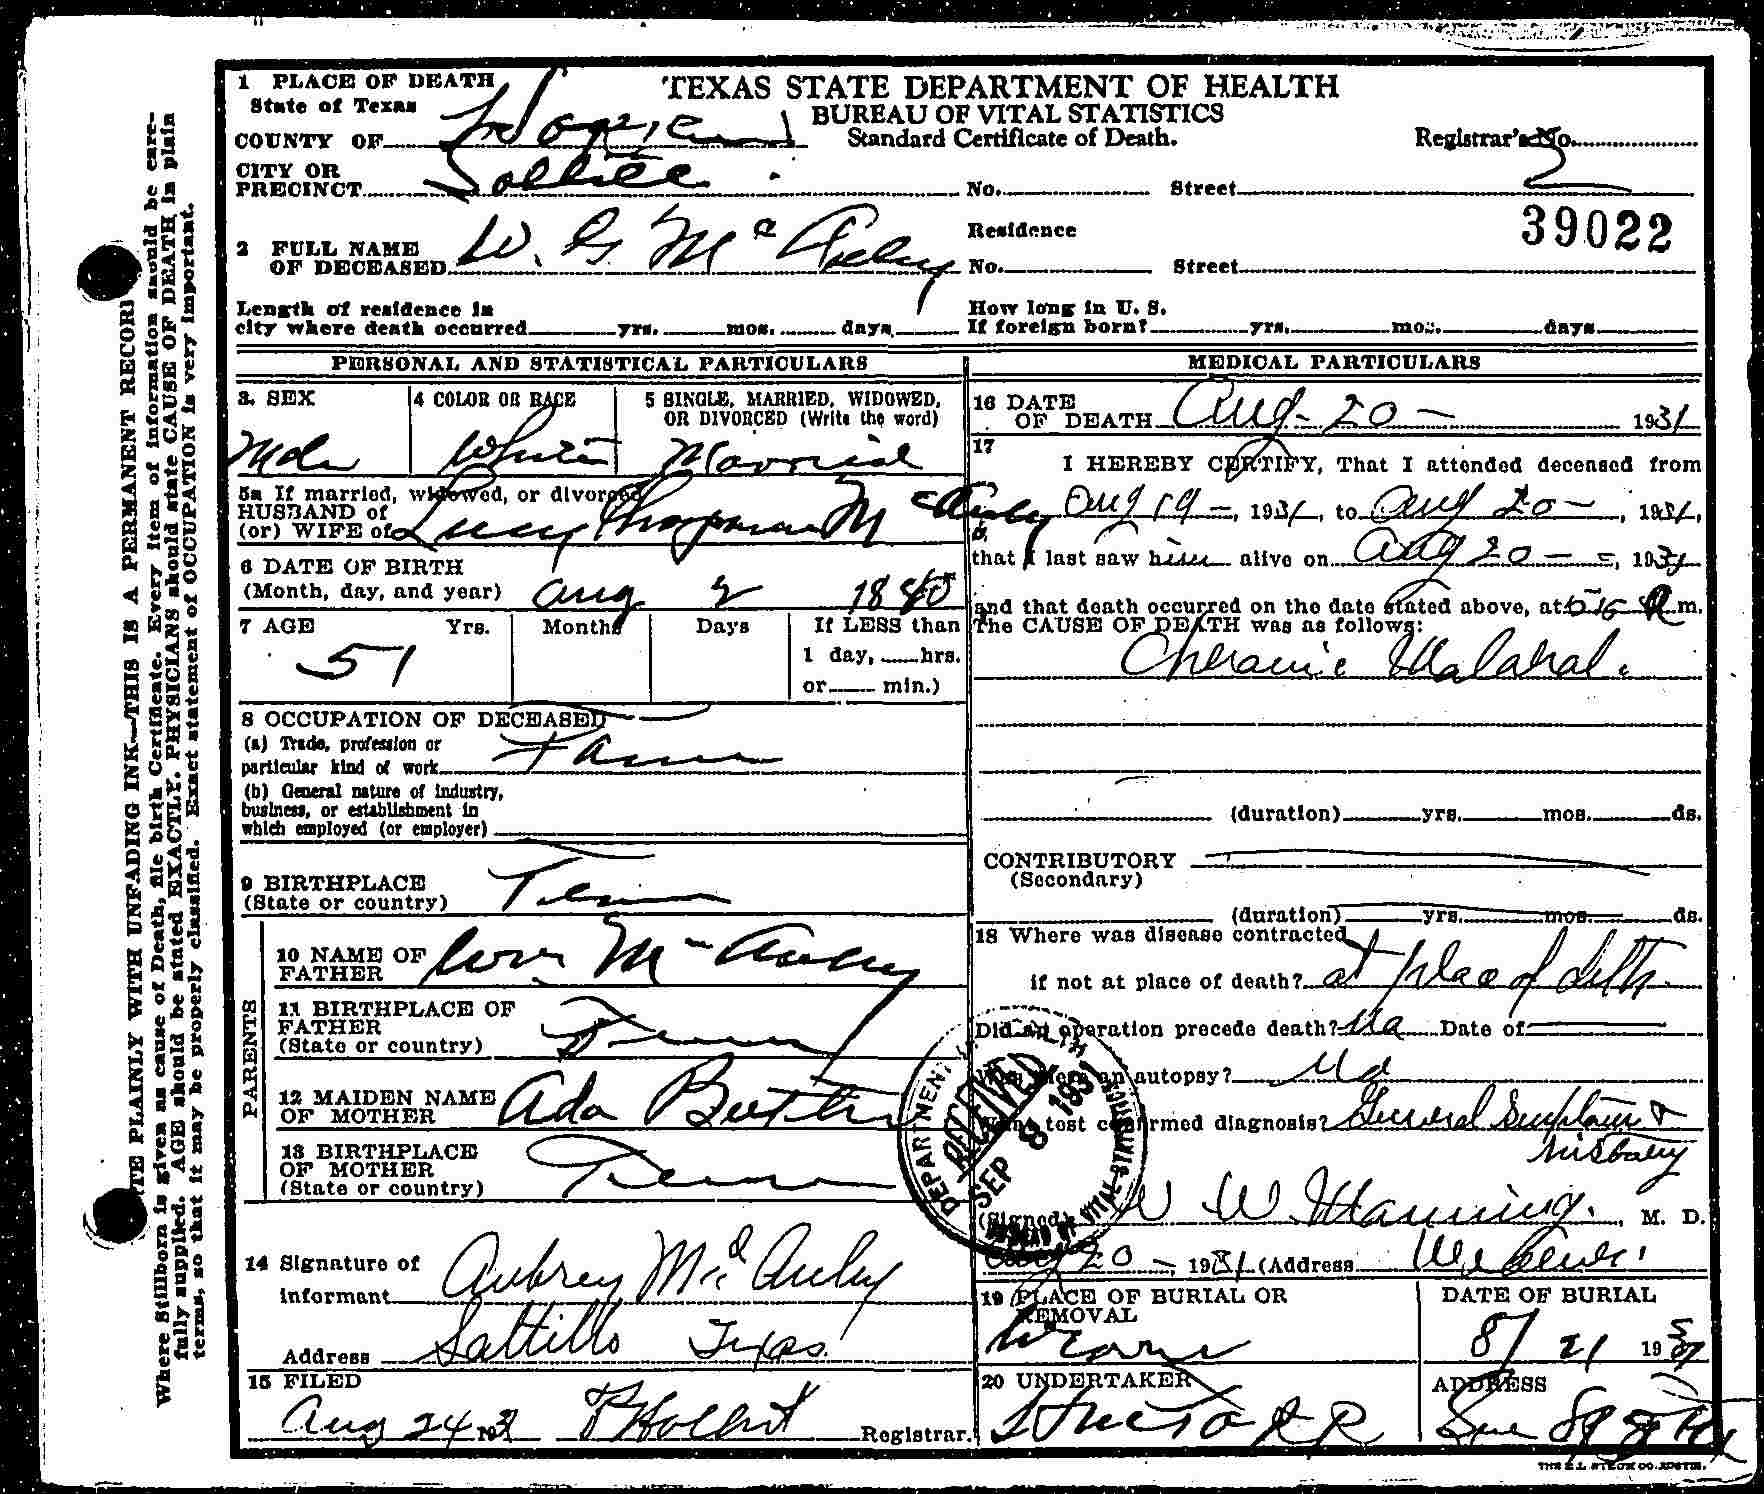 1 PLACE OF DEATH
State of Texas
COUNTY OF Hopkins
CITY OR
PRECINCT
TEXAS STATE DEPARTMENT OF HEALTH
BUREAU OF VITAL STATISTICS
Standard Certificate of Death.
Registrar's No. 2
No. Street
39022
2 FULL NAME
OF DECEASED W. G. Mc
Residence
No. Street
Length of residence in
city where death occurred yrs. mos. days.
How long in U. S.
If foreign born? yrs. mos. days
PERSONAL AND STATISTICAL PARTICULARS
3. SEX
4 COLOR OR RACE
5 SINGLE, MARRIED, WIDOWED,
OR DIVORCED (Write the word)
White Married
5a If married, widowed, or divorced
HUSBAND of
(or) WIFE of Lucy Chapman Mc
6 DATE OF BIRTH
(Month, day, and year) Aug 2
7 AGE Yrs. Months Days If LESS than
51
1 day, hrs.
or min.)
8 OCCUPATION OF DECEASED
(a) Trade, profession or
particular kind of work
(b) General nature of industry,
business, or establishment in
which employed (or employer)
9 BIRTHPLACE
(State or country) Tenn
PARENTS
10 NAME OF
FATHER
11 BIRTHPLACE OF
FATHER
(State or country) Tenn
12 MAIDEN NAME
OF MOTHER Ada
13 BIRTHPLACE
OF MOTHER
(State or country) Tenn
14 Signature of
Informant Aubrey
Address Saltillo Texas
15 FILED
Aug 24 193
Registrar.
MEDICAL PARTICULARS
16 DATE
OF DEATH Aug - 20 - 1931
17
I HEREBY CERTIFY, That I attended deceased from
Aug 19 -, 1931, to Aug 20 -, 1931,
that I last saw him alive on Aug 20 - , 1931
and that death occurred on the date stated above, at m.
The CAUSE OF DEATH was as follows:
(duration) yrs. mos. ds.
CONTRIBUTORY
(Secondary)
(duration) yrs. mos. ds.
18 Where was disease contracted
if not at place of death? at place of
Did an operation precede death? No Date of
Was there an autopsy? No
What test confirmed diagnosis? General
(Signed) W W Manning. , M. D.
20 -, 1931 (Address
19 PLACE OF BURIAL OR
REMOVAL
DATE OF BURIAL
8/ 21 193
20 UNDERTAKER
ADDRESS
DEPARTMENT OF HEALTH
RECEIVED
SEP 8 1931
BUREAU OF VITAL STATISTICS
THE E.L. STECK CO. AUSTIN.
TE PLAINLY WITH UNFADING INK—THIS IS A PERMANENT RECORD
Where Stillborn is given as cause of Death, file birth Certificate. Every item of information should be care-
fully supplied. AGE should be stated EXACTLY. PHYSICIANS should state CAUSE OF DEATH in plain
terms, so that it may be properly classified. Exact statement of OCCUPATION is very important.